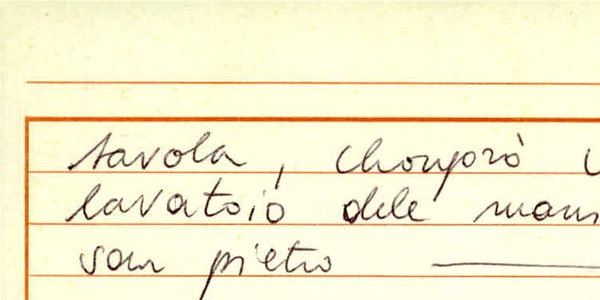 tavola, chonprò
lavatoio dele
san pietro